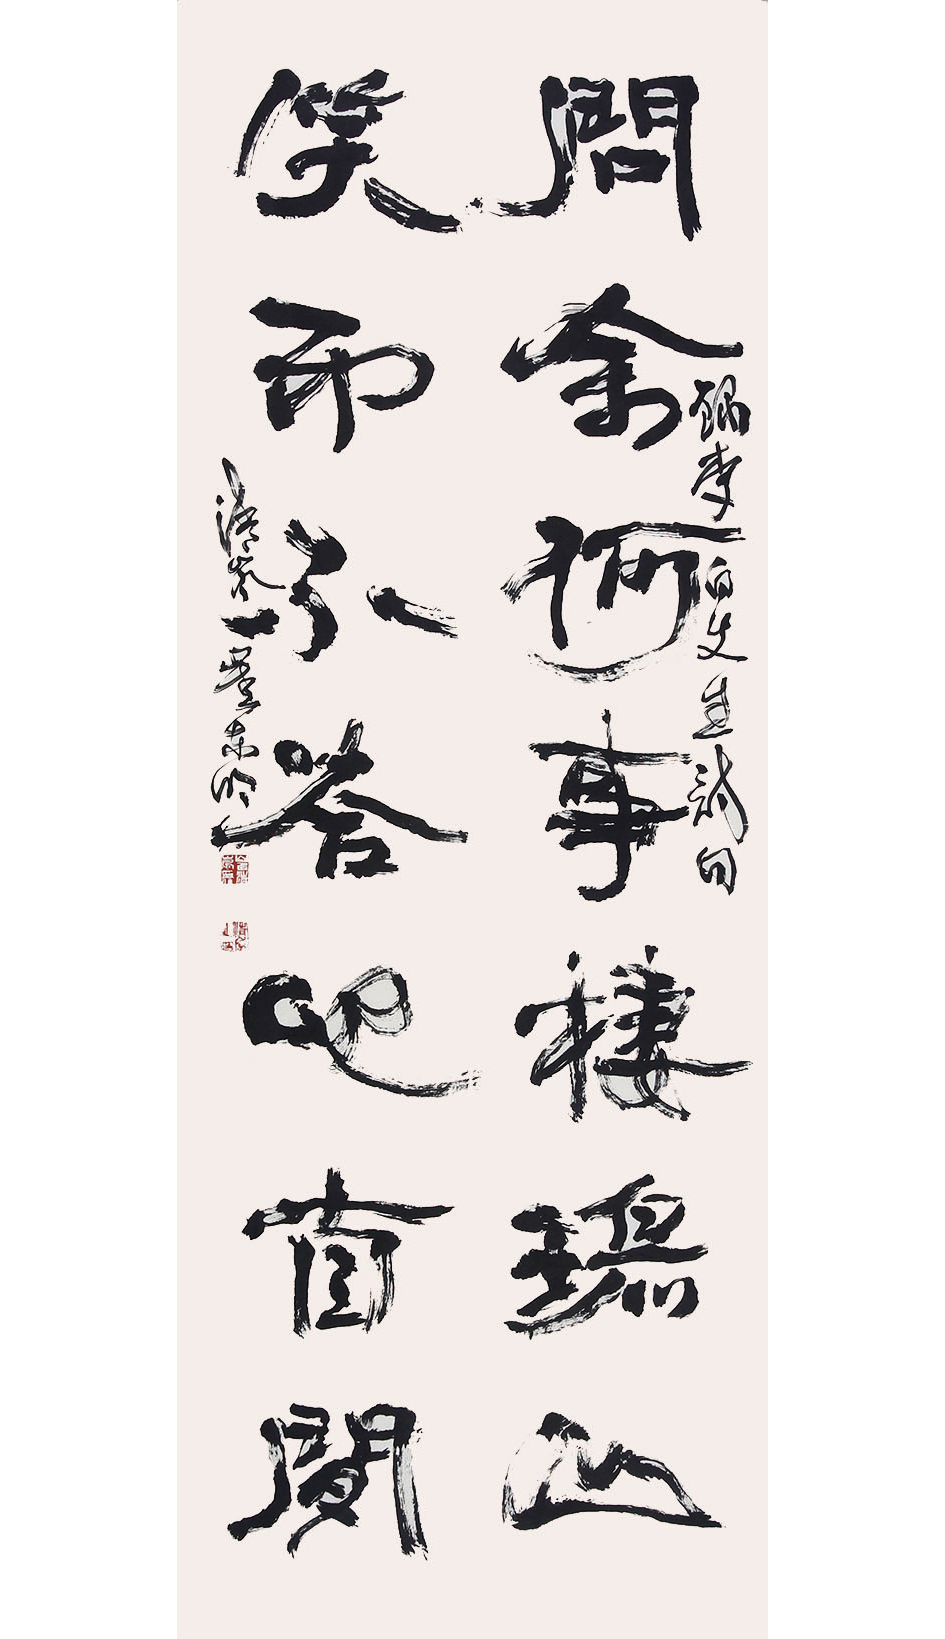 問余何事棲碧山
笑而不答心自閒
錄李白先生詩句